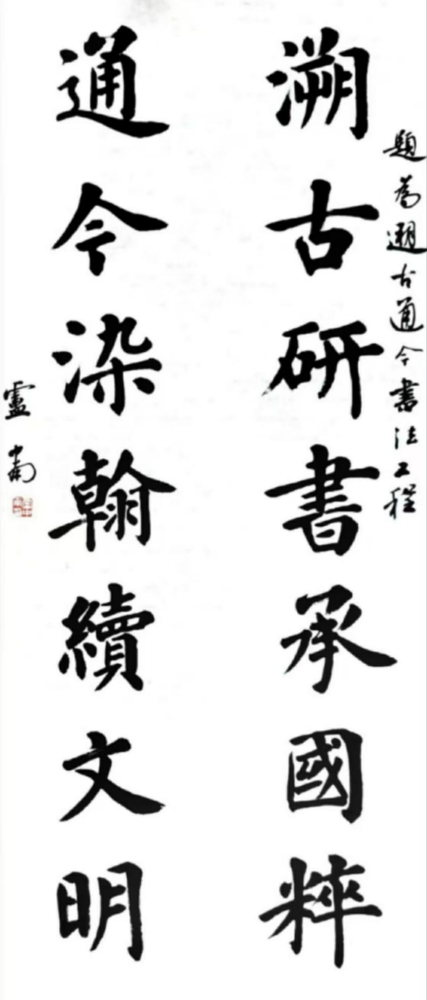 題為溯古通今書法工程
溯古研書承國粹
通今染翰續文明
盧中南